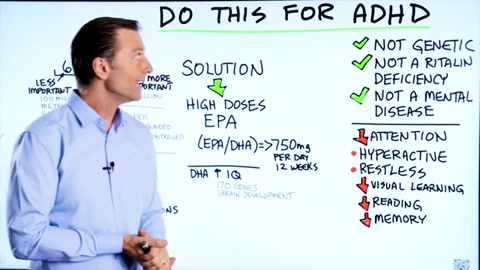 DO THIS FOR ADHD
LESS
IMPORTANT
MORE
IMPORTANT
SOLUTION
HIGH DOSES
EPA
(EPA/DHA) => 750mg
PER DAY
12 WEEKS
DHA ↑ IQ
170 GENES
(BRAIN DEVELOPMENT
NOT GENETIC
NOT A RITALIN
DEFICIENCY
NOT A MENTAL
DISEASE
ATTENTION
HYPERACTIVE
RESTLESS
VISUAL LEARNING
READING
MEMORY